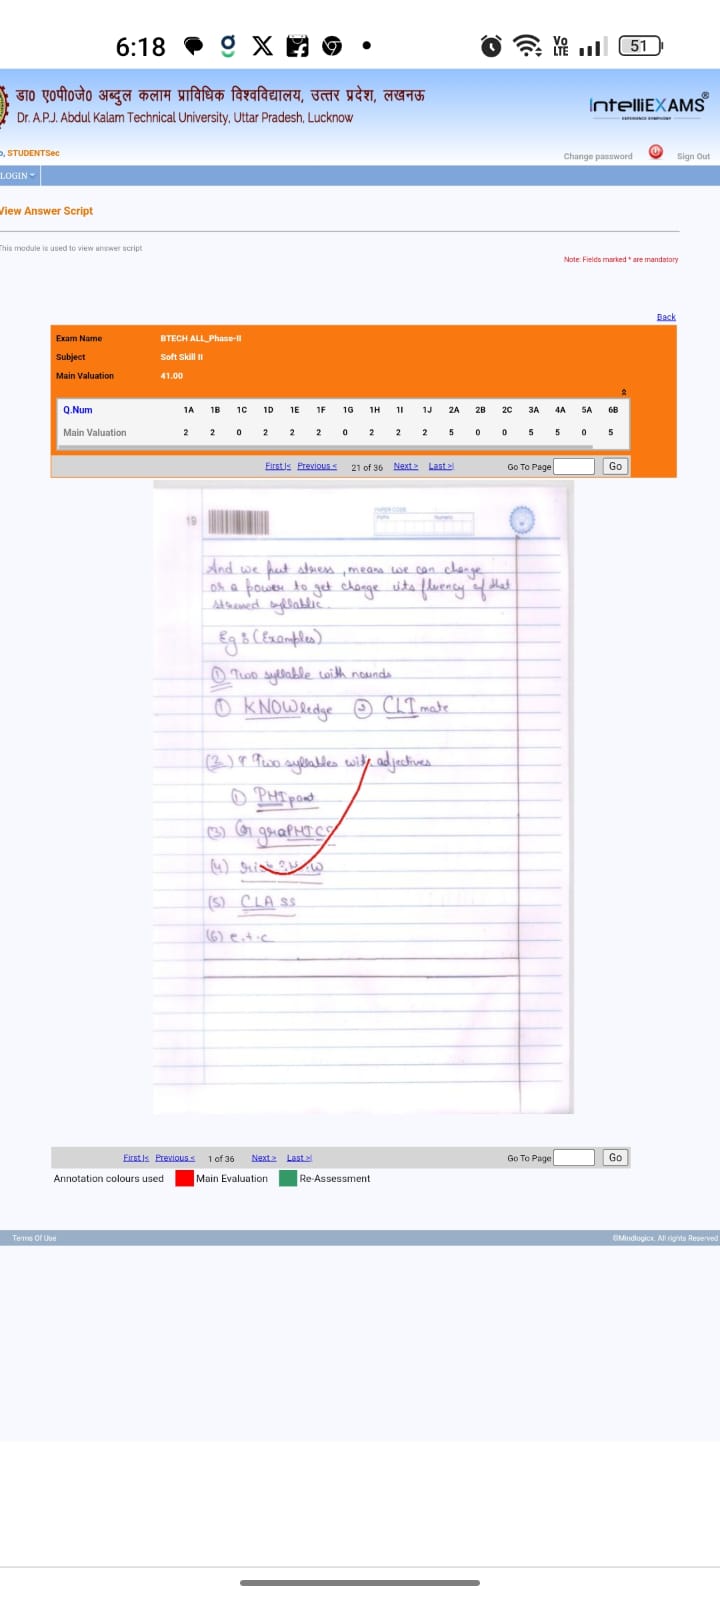 6:18
Vo
LTE
51
डा0 ए0पी0जे0 अब्दुल कलाम प्राविधिक विश्वविद्यालय, उत्तर प्रदेश, लखनऊ
Dr. A.P.J. Abdul Kalam Technical University, Uttar Pradesh, Lucknow
IntelliEXAMS®
o, STUDENTSec
Change password Sign Out
LOGIN
View Answer Script
This module is used to view answer script
Note: Fields marked * are mandatory
Back
Exam Name BTECH ALL_Phase-II
Subject Soft Skill II
Main Valuation 41.00
Q.Num 1A 1B 1C 1D 1E 1F 1G 1H 1I 1J 2A 2B 2C 3A 4A 5A 6B
Main Valuation 2 2 0 2 2 2 0 2 2 2 5 0 0 5 5 0 5
First |< Previous < 21 of 36 Next > Last >| Go To Page Go
PAPER CODE
19
And we put stress, means we can change
or a power to get change its fluency of that
stressed syllable.
Eg: (Examples)
① Two syllable with nounds
① KNOWledge ② CLImate
(2) Two syllables with adjectives
①
(3) graPHICS
(4)
(5) CLAss
(6) e.t.c
First |< Previous < 1 of 36 Next > Last >| Go To Page Go
Annotation colours used Main Evaluation Re-Assessment
Terms Of Use ©Mindlogicx. All rights Reserved